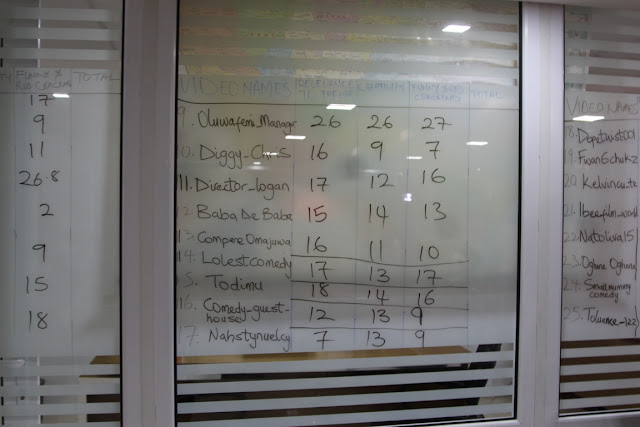 FUNNY &
TOTAL
17
9
11
26.8
2
9
15
18
VIDEO NAMES
TOTAL
9. Oluwafemi_Manager 26 26 27
10. Diggy_Chris 16 9 7
11. Director_logan 17 12 16
12. Baba De Baba 15 14 13
13. Compere Omajuwa 16 11 10
14. Lolestcomedy 17 13 17
5. Todimu 18 14 16
16. Comedy-guest-
house 12 13 9
17. Nahstynuelcy 7 13 9
VIDEO NAME
18. Dopetwist001
19. Fwangchukz
20. Kelvincute
21. Ibeefilm_world
22. Natoliva15
23. Oghene
24. Smallmummy
comedy
25.